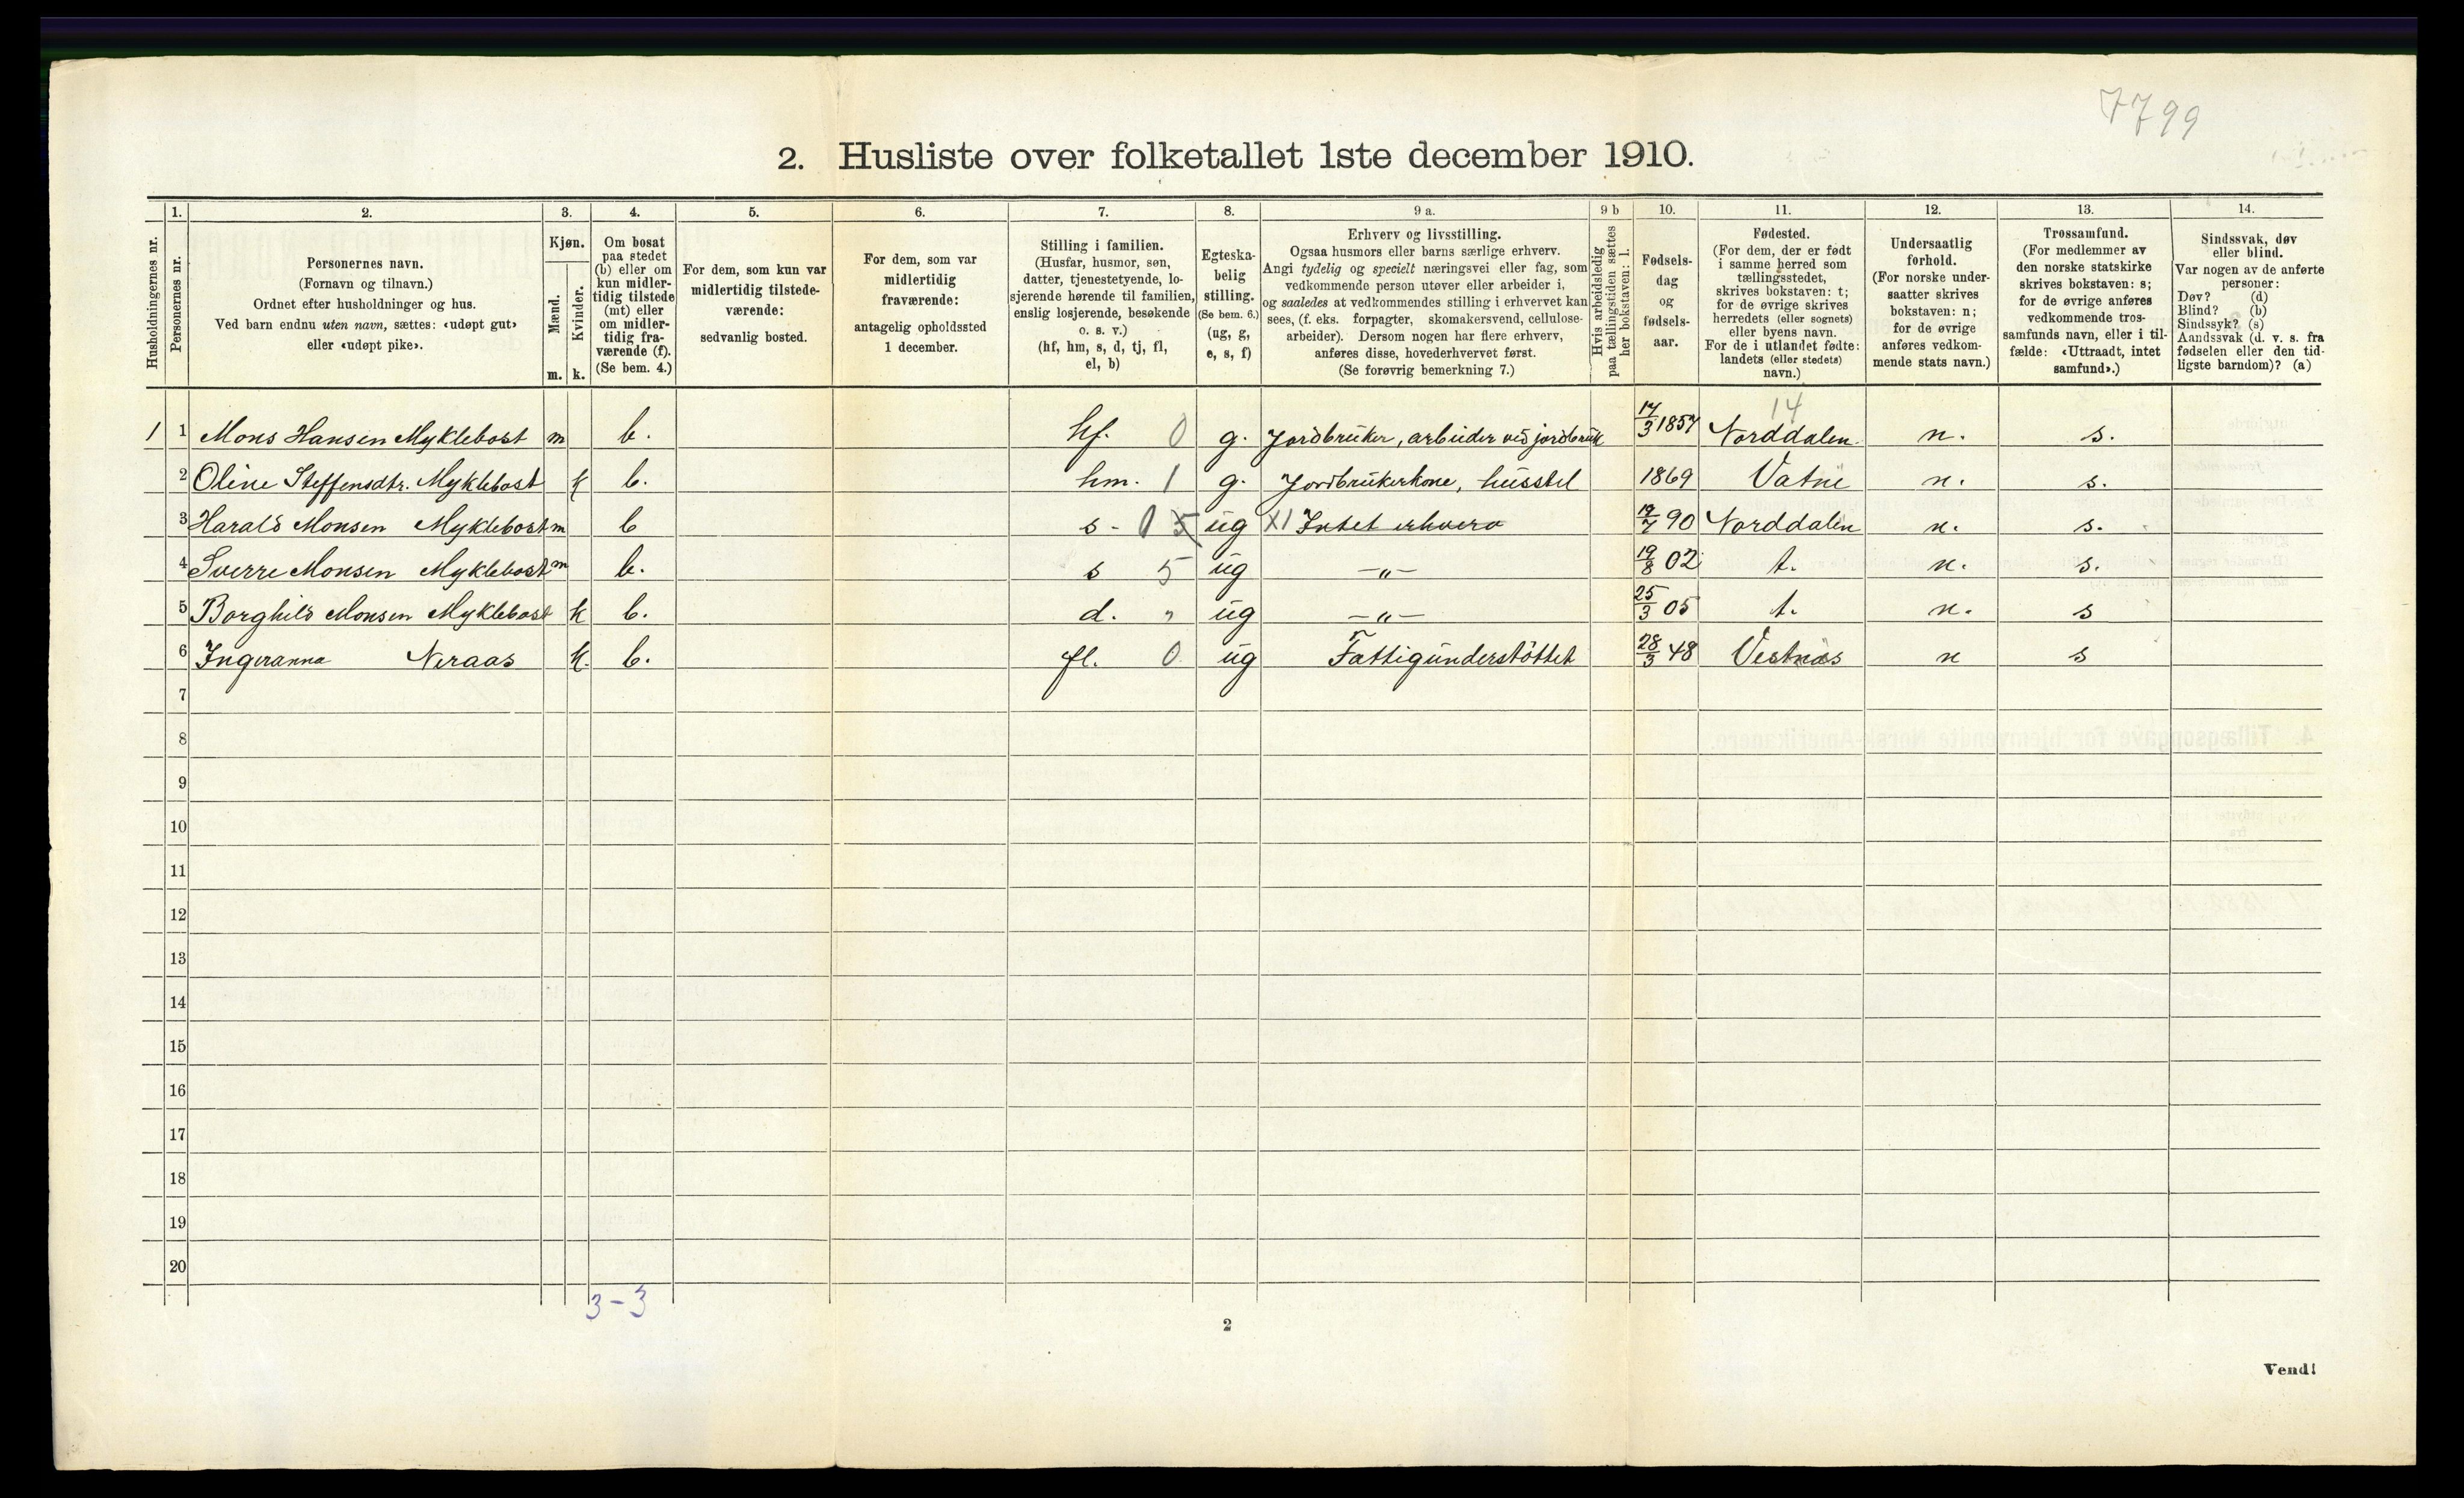 7799
2. Husliste over folketallet 1ste december 1910.
1. 2. 3. 4. 5. 6. 7. 8. 9 a. 9 b 10. 11. 12. 13. 14.
Husholdningernes nr.
Personernes nr.
Personernes navn.
(Fornavn og tilnavn.)
Ordnet efter husholdninger og hus.
Ved barn endnu uten navn, sættes: «udøpt gut»
eller «udøpt pike».
Kjøn.
Mænd.
Kvinder.
m. k.
Om bosat
paa stedet
(b) eller om
kun midler-
tidig tilstede
(mt) eller
om midler-
tidig fra-
værende (f).
(Se bem. 4.)
For dem, som kun var
midlertidig tilstede-
værende:
sedvanlig bosted.
For dem, som var
midlertidig
fraværende:
antagelig opholdssted
1 december.
Stilling i familien.
(Husfar, husmor, søn,
datter, tjenestetyende, lo-
sjerende hørende til familien,
enslig losjerende, besøkende
o. s. v.)
(hf, hm, s, d, tj, fl,
el, b)
Egteska-
belig
stilling.
(Se bem. 6.)
(ug, g,
e, s, f)
Erhverv og livsstilling.
Ogsaa husmors eller barns særlige erhverv.
Angi tydelig og specielt næringsvei eller fag, som
vedkommende person utøver eller arbeider i,
og saaledes at vedkommendes stilling i erhvervet kan
sees, (f. eks. forpagter, skomakersvend, cellulose-
arbeider). Dersom nogen har flere erhverv,
anføres disse, hovederhvervet først.
(Se forøvrig bemerkning 7.)
Hvis arbeidsledig
paa tællingstiden sættes
her bokstaven: l.
Fødsels-
dag
og
fødsels-
aar.
Fødested.
(For dem, der er født
i samme herred som
tællingsstedet,
skrives bokstaven: t;
for de øvrige skrives
herredets (eller sognets)
eller byens navn.
For de i utlandet fødte:
landets (eller stedets)
navn.)
Undersaatlig
forhold.
(For norske under-
saatter skrives
bokstaven: n;
for de øvrige
anføres vedkom-
mende stats navn.)
Trossamfund.
(For medlemmer av
den norske statskirke
skrives bokstaven: s;
for de øvrige anføres
vedkommende tros-
samfunds navn, eller i til-
fælde: «Uttraadt, intet
samfund».)
Sindssvak, døv
eller blind.
Var nogen av de anførte
personer:
Døv? (d)
Blind? (b)
Sindssyk? (s)
Aandssvak (d. v. s. fra
fødselen eller den tid-
ligste barndom)? (a)
14
1 1 Mons Hansen Myklebost m b. hf. 0 g. Jordbruker, arbeider ved jordbruk 17/3 1857 Norddalen. n. s.
2 Oline Steffensdtr. Myklebost k b. hm. 1 g. Jordbrukerkone, husstel 1869 Vatne n. s.
3 Harald Monsen Myklebost m b s - 0 5 ug X1 Intet erhverv 19/7 90 Norddalen n. s.
4 Sverre Monsen Myklebost m b. s 5 ug —"— 19/8 02 t. n. s.
5 Borghild Monsen Myklebost k b. d. " ug —"— 25/3 05 t. n. s
6 Ingeranna Neraas k. b. fl. 0 ug Fattigunderstöttet 28/3 48 Vestnæs n s
7
8
9
10
11
12
13
14
15
16
17
18
19
20
3-3
2
Vend!